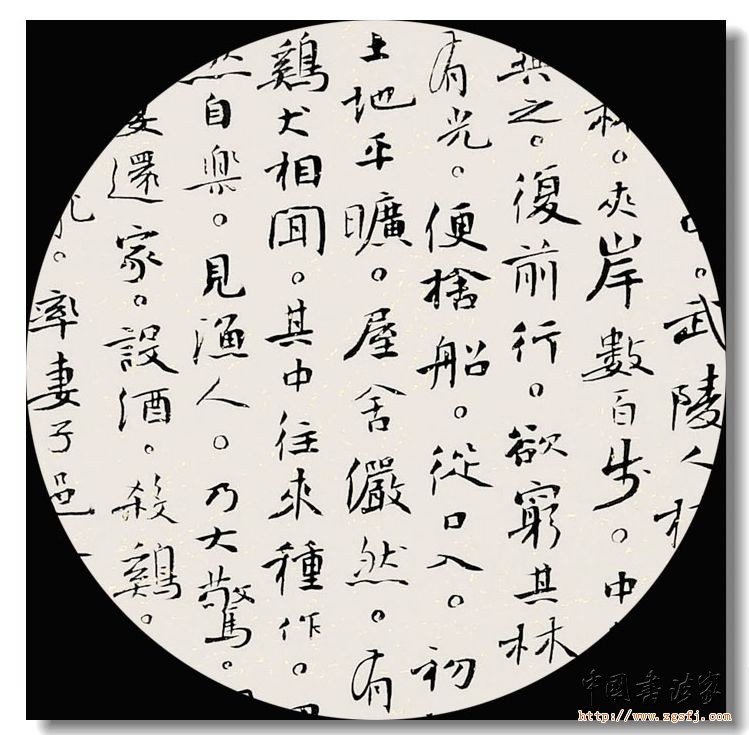 中。武陵人捕
林。夾岸數百步。中
異之。復前行。欲窮其林
有光。便捨船。從口入。初
土地平曠。屋舍儼然。有
鷄犬相聞。其中往來種作。
然自樂。見漁人。乃大驚。
還家。設酒。殺鷄。
亂。率妻子邑
中国书法家
http://www.zgsfj.com